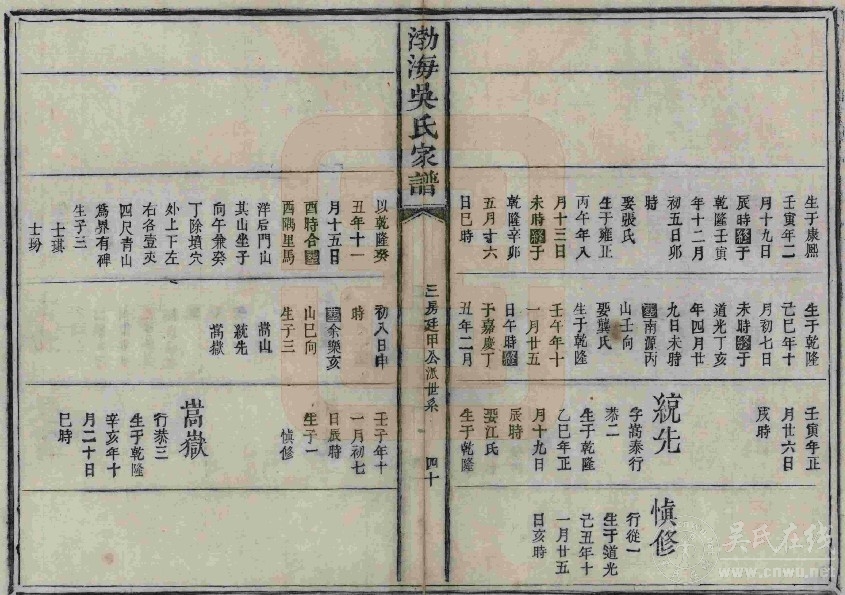 生于康熙
壬寅年二
月十九日
辰時終于
乾隆壬寅
年十二月
初五日卯
時
娶張氏
生于雍正
丙午年八
月十三日
未時終于
乾隆辛卯
五月廿六
日巳時
生于乾隆
己巳年十
月初七日
未時終于
道光丁亥
年四月廿
九日未時
葬南源丙
山壬向
娶龔氏
生于乾隆
壬午年十
一月廿五
日午時終
于嘉慶丁
丑年二月
壬寅年正
月廿六日
辰時
統先
字嵩泰行
恭二
生于乾隆
乙巳年正
月十九日
辰時
娶江氏
生于乾隆
慎修
行從一
生于道光
己丑年十
一月廿五
日亥時
渤海吳氏家譜
三房廷甲公派世系
四十
以乾隆癸
丑年十一
月十五日
酉時合葬
酉隅里馬
洋后門山
其山坐子
向午兼癸
丁除墳穴
外上下左
右各壹丈
四尺青山
為界有碑
生子三
士璂
士玢
初八日申
時
葬余樂亥
山巳向
生子三
嵩山
統先
嵩嶽
壬子年十
一月初七
日辰時
生子一
慎修
嵩嶽
行恭三
生于乾隆
辛亥年十
月二十日
巳時
吴氏在线
www.cnwu.net